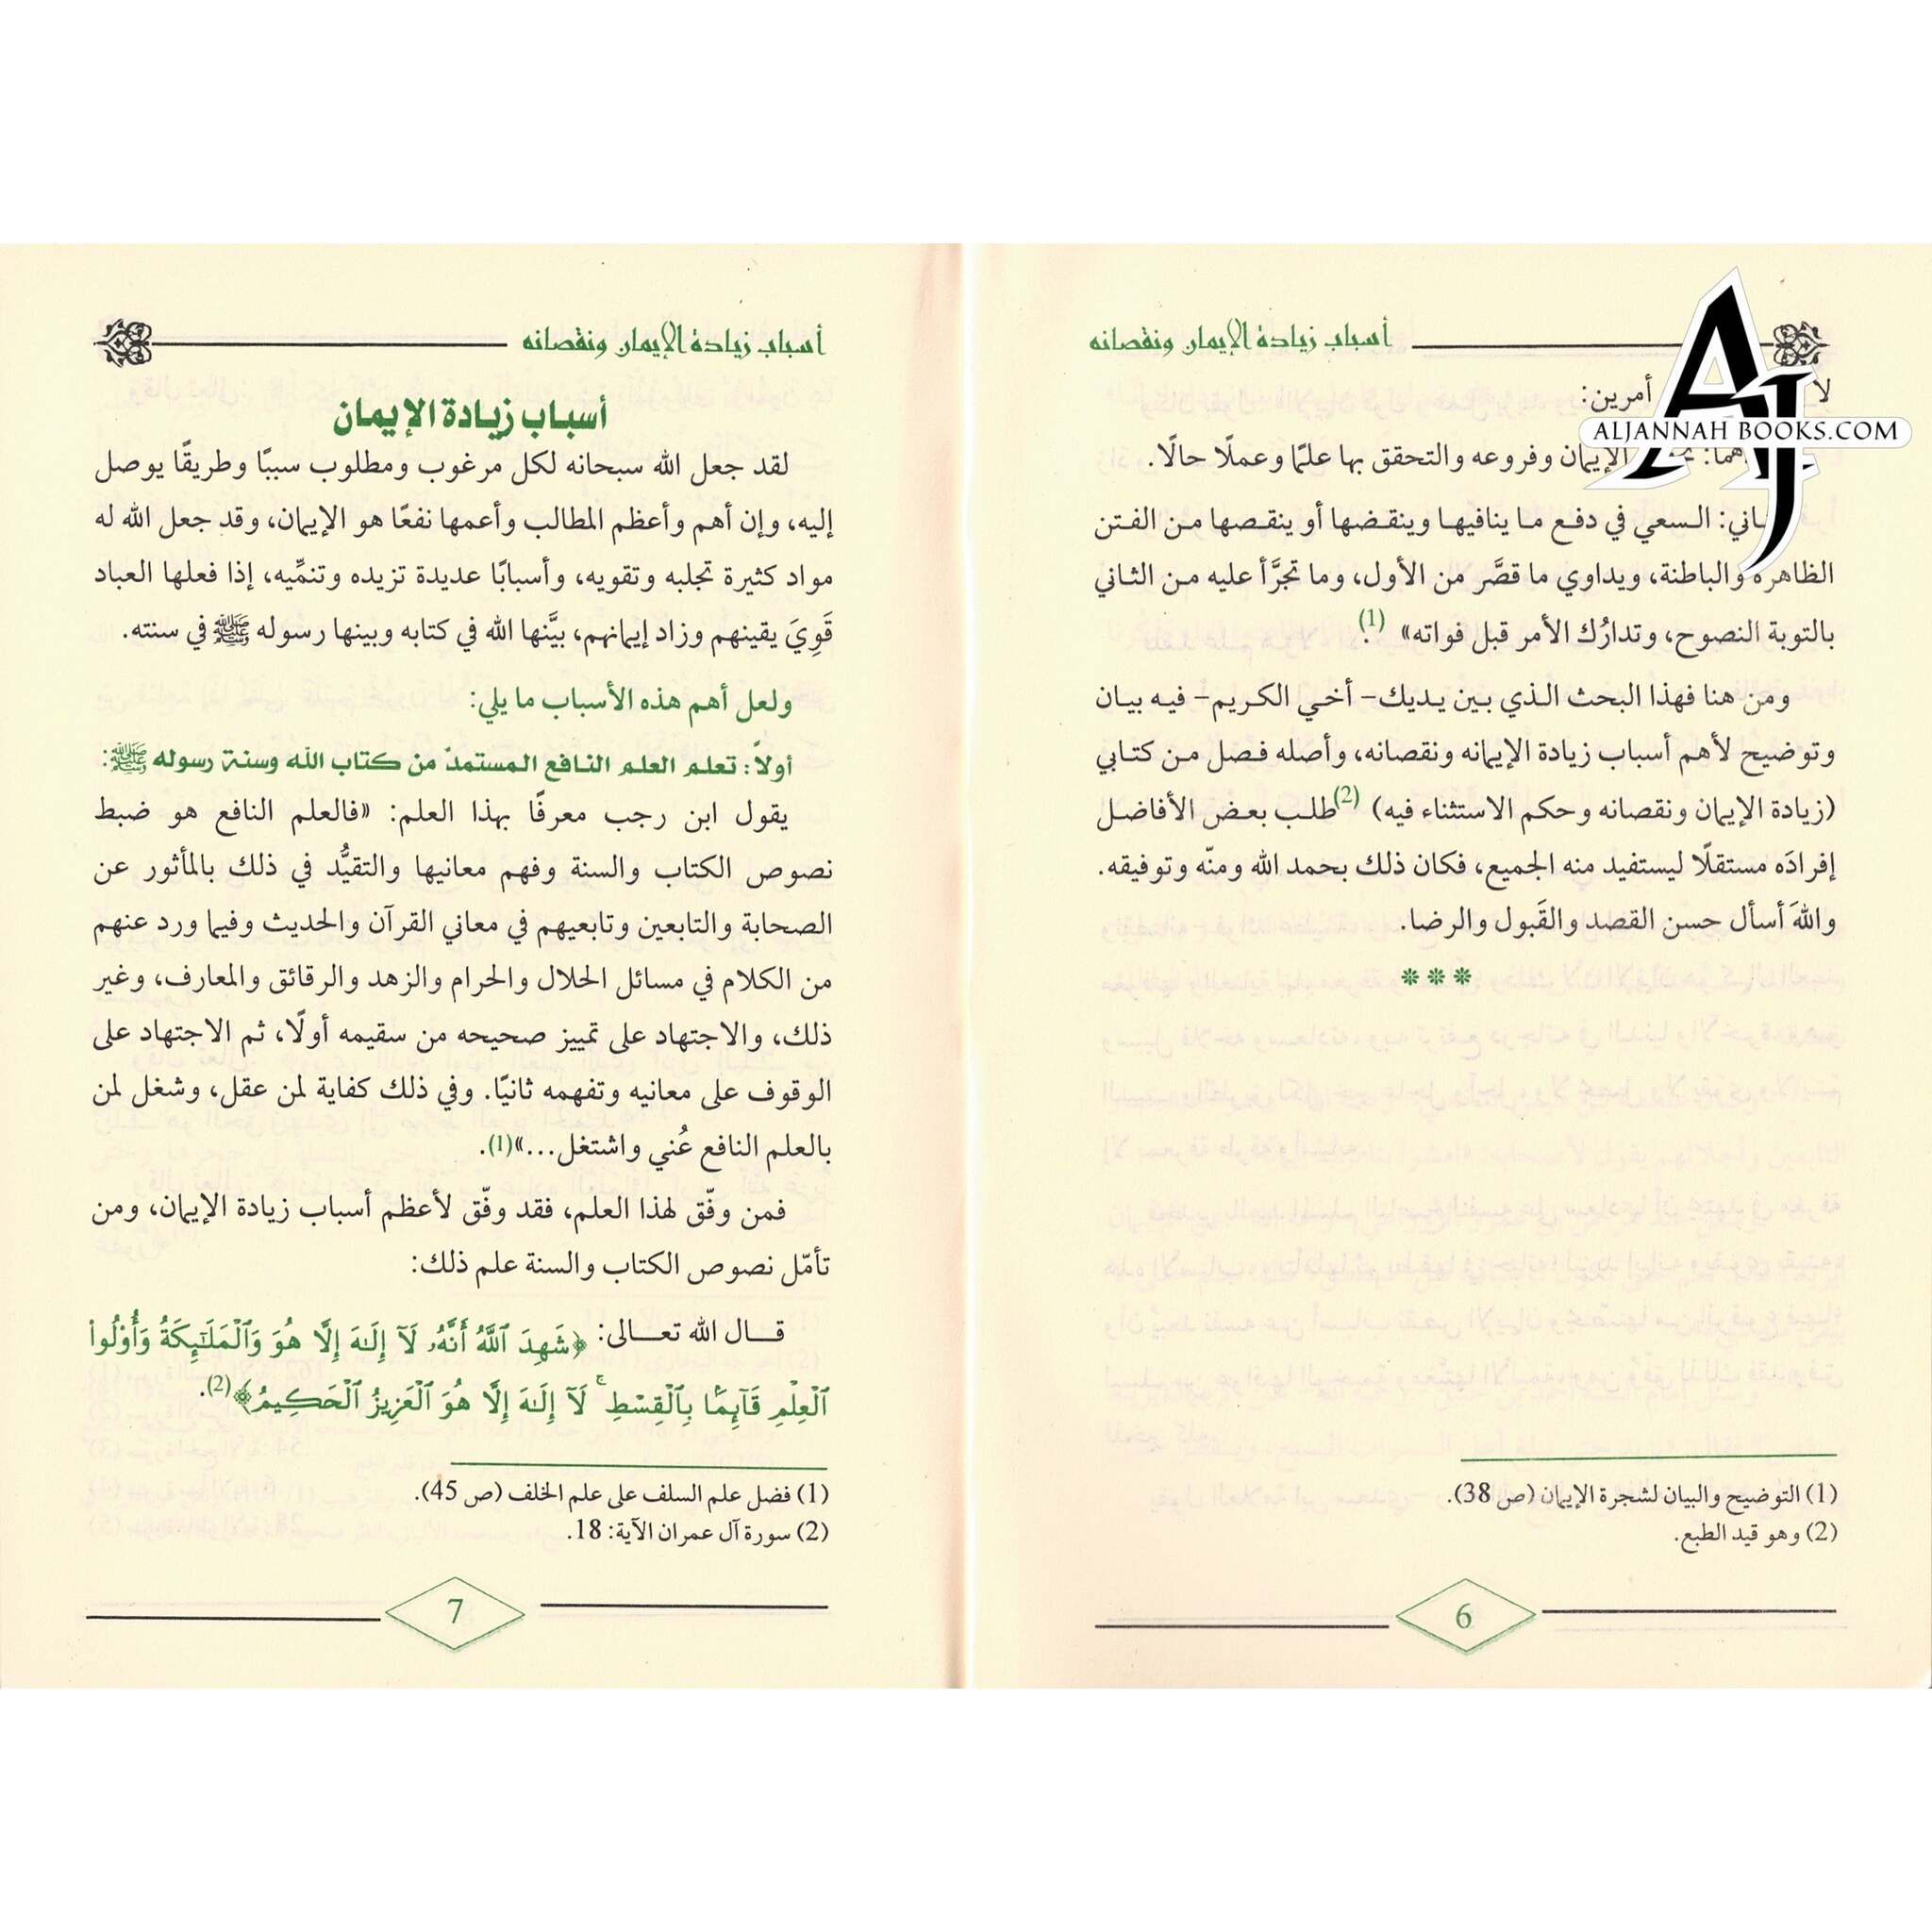 أسباب زيادة الإيمان ونقصانه
AJ
ALJANNAH BOOKS.COM
لا أمرين:
الإيمان وفروعه والتحقق بها علمًا وعملًا حالًا.
السعي في دفع ما ينافيها وينقضها أو ينقصها من الفتن
الظاهرة والباطنة، ويداوي ما قصَّر من الأول، وما تجرَّأ عليه من الثاني
بالتوبة النصوح، وتدارُك الأمر قبل فواته» (1).
ومن هنا فهذا البحث الذي بين يديك– أخي الكريم– فيه بيان
وتوضيح لأهم أسباب زيادة الإيمانه ونقصانه، وأصله فصل من كتابي
(زيادة الإيمان ونقصانه وحكم الاستثناء فيه) (2) طلب بعض الأفاضل
إفرادَه مستقلًا ليستفيد منه الجميع، فكان ذلك بحمد الله ومنّه وتوفيقه.
واللهَ أسأل حسن القصد والقَبول والرضا.
***
(1) التوضيح والبيان لشجرة الإيمان (ص 38).
(2) وهو قيد الطبع.
6
أسباب زيادة الإيمان ونقصانه
أسباب زيادة الإيمان
لقد جعل الله سبحانه لكل مرغوب ومطلوب سببًا وطريقًا يوصل
إليه، وإن أهم وأعظم المطالب وأعمها نفعًا هو الإيمان، وقد جعل الله له
مواد كثيرة تجلبه وتقويه، وأسبابًا عديدة تزيده وتنمِّيه، إذا فعلها العباد
قَوِيَ يقينهم وزاد إيمانهم، بيَّنها الله في كتابه وبينها رسوله ﷺ في سنته.
ولعل أهم هذه الأسباب ما يلي:
أولاً: تعلم العلم النافع المستمدّ من كتاب الله وسنة رسوله ﷺ:
يقول ابن رجب معرفًا بهذا العلم: «فالعلم النافع هو ضبط
نصوص الكتاب والسنة وفهم معانيها والتقيُّد في ذلك بالمأثور عن
الصحابة والتابعين وتابعيهم في معاني القرآن والحديث وفيما ورد عنهم
من الكلام في مسائل الحلال والحرام والزهد والرقائق والمعارف، وغير
ذلك، والاجتهاد على تمييز صحيحه من سقيمه أولًا، ثم الاجتهاد على
الوقوف على معانيه وتفهمه ثانيًا. وفي ذلك كفاية لمن عقل، وشغل لمن
بالعلم النافع عُني واشتغل...»(1).
فمن وفّق لهذا العلم، فقد وفّق لأعظم أسباب زيادة الإيمان، ومن
تأمّل نصوص الكتاب والسنة علم ذلك:
قال الله تعالى: ﴿شَهِدَ ٱللَّهُ أَنَّهُۥ لَآ إِلَٰهَ إِلَّا هُوَ وَٱلْمَلَٰٓئِكَةُ وَأُو۟لُوا۟
ٱلْعِلْمِ قَآئِمًۢا بِٱلْقِسْطِ ۚ لَآ إِلَٰهَ إِلَّا هُوَ ٱلْعَزِيزُ ٱلْحَكِيمُ﴾(2).
(1) فضل علم السلف على علم الخلف (ص 45).
(2) سورة آل عمران الآية: 18.
7